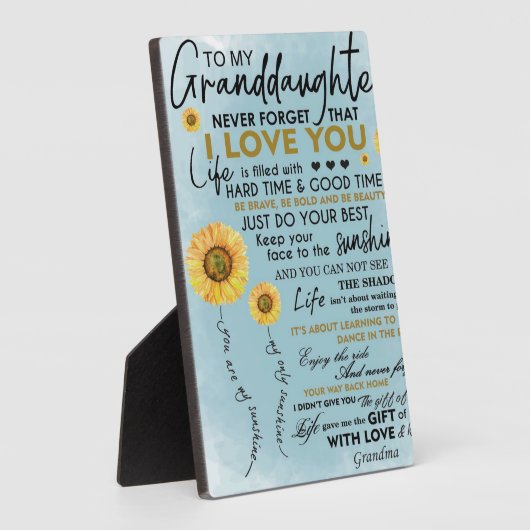 TO MY
Granddaughte
NEVER FORGET THAT
I LOVE YOU
Life is filled with
HARD TIME & GOOD TIME
BE BRAVE, BE BOLD AND BE BEAUTY
JUST DO YOUR BEST
Keep your
face to the sunshin
AND YOU CAN NOT SEE
THE SHADO
Life isn't about waiting
the storm to
IT'S ABOUT LEARNING TO
DANCE IN THE
Enjoy the ride
And never for
YOUR WAY BACK HOME
I DIDN'T GIVE YOU The gift of
Life gave me the GIFT OF
WITH LOVE &
Grandma
you are my sunshine
my only sunshine